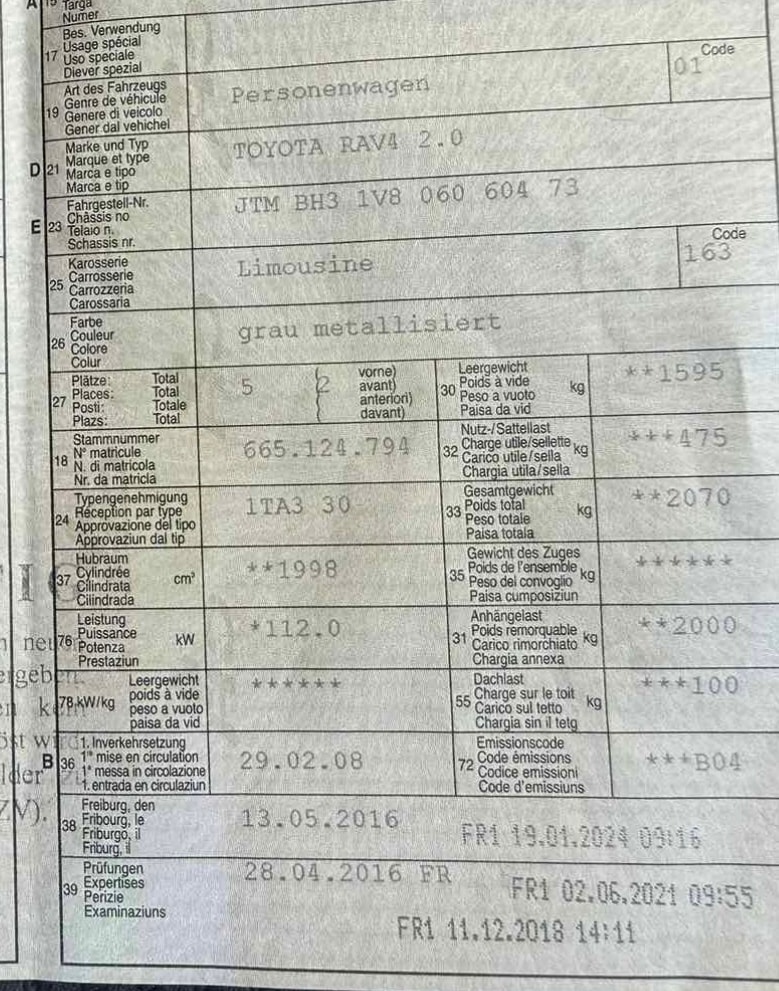 A 15 Targa
Numer
17 Bes. Verwendung
Usage spécial
Uso speciale
Diever spezial
19 Art des Fahrzeugs
Genre de véhicule
Genere di veicolo
Gener dal vehichel
Personenwagen
Code
01
D 21 Marke und Typ
Marque et type
Marca e tipo
Marca e tip
TOYOTA RAV4 2.0
E 23 Fahrgestell-Nr.
Châssis no
Telaio n.
Schassis nr.
JTM BH3 1V8 060 604 73
25 Karosserie
Carrosserie
Carrozzeria
Carossaria
Limousine
Code
163
26 Farbe
Couleur
Colore
Colur
grau metallisiert
27 Plätze: Total
Places: Total
Posti: Totale
Plazs: Total
5 (2 vorne)
avant)
anteriori)
davant)
30 Leergewicht
Poids à vide kg
Peso a vuoto
Paisa da vid
**1595
18 Stammnummer
N° matricule
N. di matricola
Nr. da matricla
665.124.794
32 Nutz-/Sattellast
Charge utile/sellette kg
Carico utile/sella
Chargia utila/sella
***475
24 Typengenehmigung
Réception par type
Approvazione del tipo
Approvaziun dal tip
1TA3 30
33 Gesamtgewicht
Poids total kg
Peso totale
Paisa totala
**2070
37 Hubraum
Cylindrée cm³
Cilindrata
Cilindrada
**1998
35 Gewicht des Zuges
Poids de l'ensemble kg
Peso del convoglio
Paisa cumposiziun
******
76 Leistung
Puissance kW
Potenza
Prestaziun
*112.0
31 Anhängelast
Poids remorquable kg
Carico rimorchiato
Chargia annexa
**2000
78 kW/kg Leergewicht
poids à vide
peso a vuoto
paisa da vid
******
55 Dachlast
Charge sur le toit kg
Carico sul tetto
Chargia sin il tetg
***100
B 36 1. Inverkehrsetzung
1re mise en circulation
1a messa in circolazione
1. entrada en circulaziun
29.02.08
72 Emissionscode
Code émissions
Codice emissioni
Code d'emissiuns
***B04
38 Freiburg, den
Fribourg, le
Friburgo, il
Friburg, il
13.05.2016
FR1 19.01.2024 09:16
39 Prüfungen
Expertises
Perizie
Examinaziuns
28.04.2016 FR
FR1 02.06.2021 09:55
FR1 11.12.2018 14:11